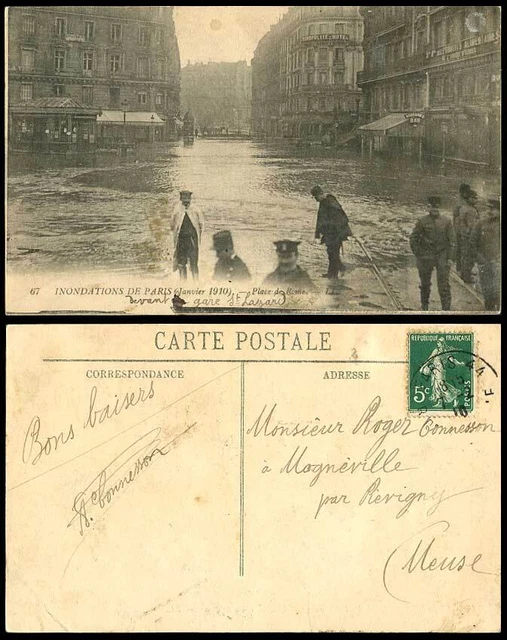 67 INONDATIONS DE PARIS (Janvier 1910). — Place de Rome. LL
devant la gare St Lazard
CARTE POSTALE
CORRESPONDANCE
ADRESSE
REPUBLIQUE FRANÇAISE
5c
POSTES
Bons baisers
Connesson
Monsieur Roger Connesson
à Mognéville
par Revigny
Meuse